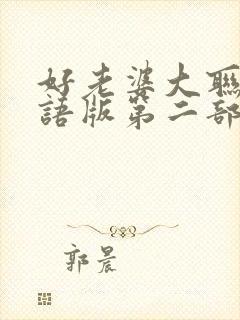 好老婆大聯
語版第二部
郭晨